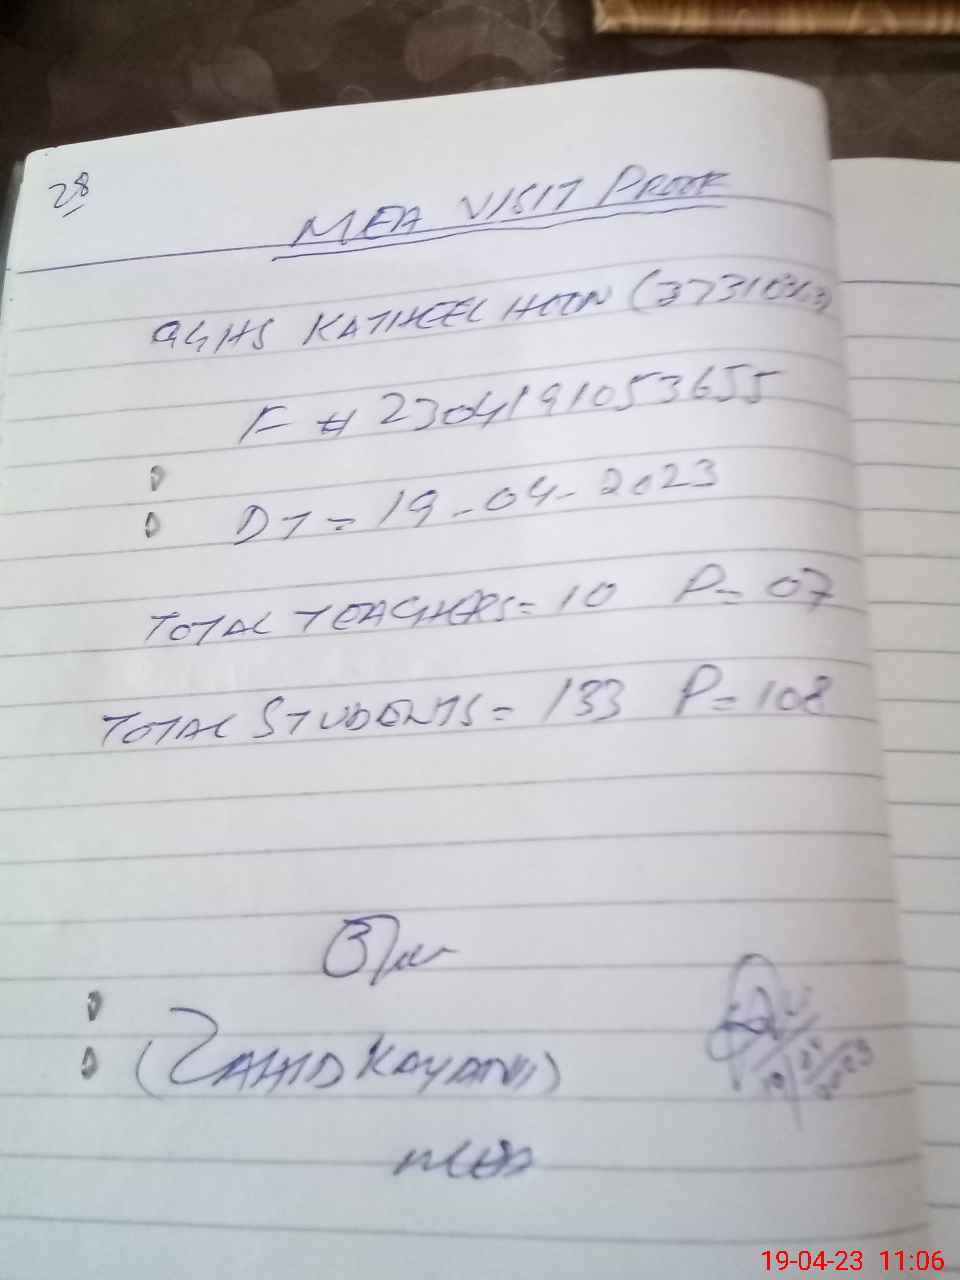 28
MEA VISIT PROOF
GGHS KATHEEL HOON (37310363)
F # 2304191053655
DT = 19-04-2023
TOTAL TEACHERS = 10 P = 07
TOTAL STUDENTS = 133 P = 108
(ZAHID KAYANI)
MEA
19/04/2023
19-04-23 11:06